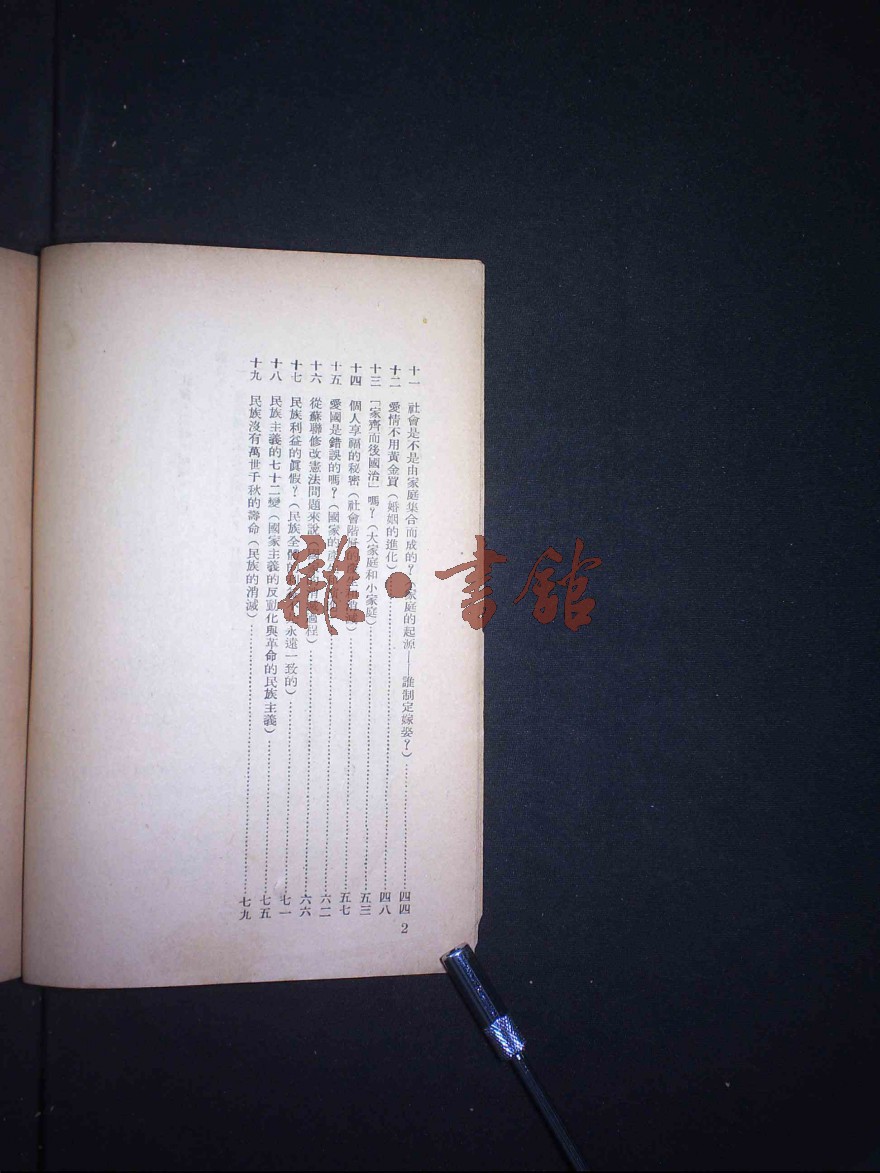 十一 社會是不是由家庭集合而成的?(家庭的起源——誰制定嫁娶?)四四
十二 愛情不用黃金買(婚姻的進化)四八
十三 「家齊而後國治」嗎?(大家庭和小家庭)五三
十四 個人享福的秘密(社會階級的)五七
十五 愛國是錯誤的嗎?(國家的)六二
十六 從蘇聯修改憲法問題來說(過程)六六
十七 民族利益的眞假?(民族全體的永遠一致的)七一
十八 民族主義的七十二變(國家主義的反動化與革命的民族主義)七五
十九 民族沒有萬世千秋的壽命(民族的消滅)七九
2
雜·書館